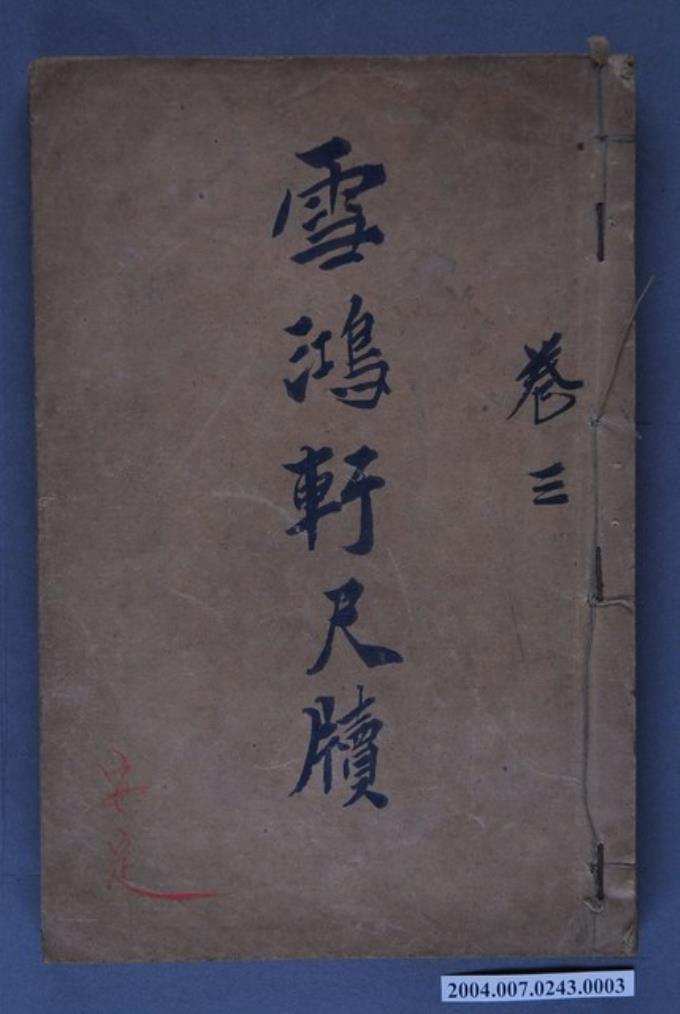 卷三
雪鴻軒尺牘
安定
2004.007.0243.0003